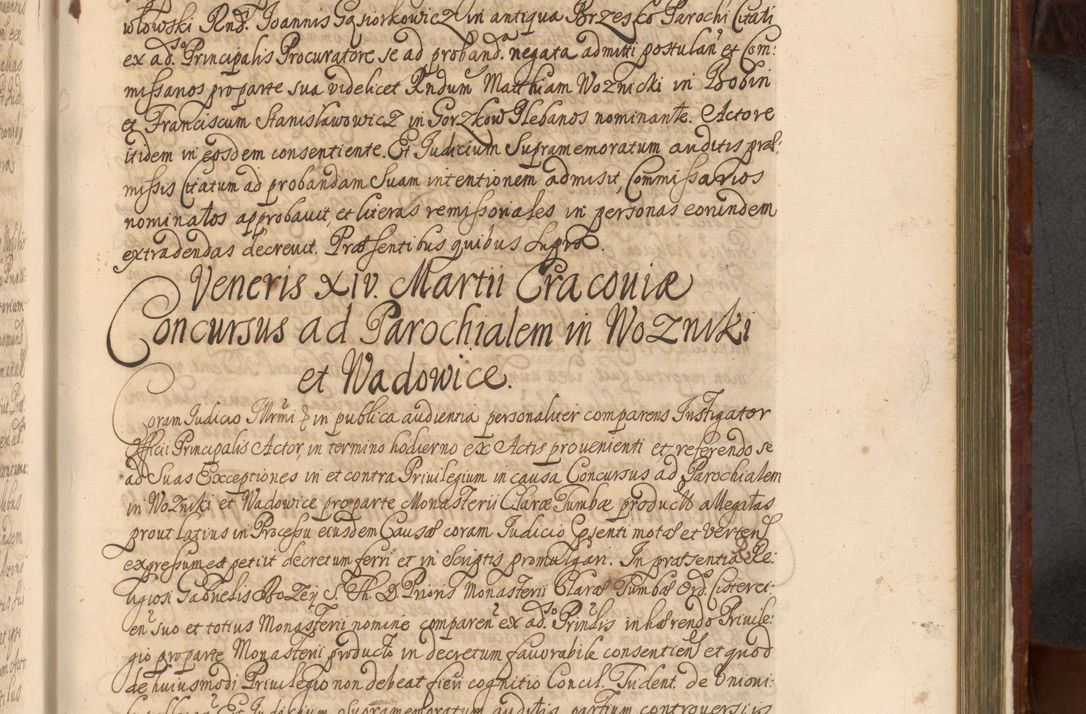 włowski Rnd. Joannis Gąsiorkowicz in antiqua Brzesko Parochi Citati
ex ad.so Principalis Procuratore se ad proband.a negata admitti postulan et Com:
missarios pro parte sua videlicet Rndum Matthiam Woznicki in Bobin
et Franciscum Stanislawowicz in Gorzkow Plebanos nominante. Actore
itidem in eosdem consentiente. Et Judicium Supramemoratum auditis præ:
missis Citatum ad probandam Suam intentionem admisit, Commissarios
nominatos approbavit, et literas remissoriales in personas eorundem
extradendas decrevit. Præsentibus quibus Supra.
Veneris XIV. Martii Cracoviæ
Concursus ad Parochialem in Wozniki
et Wadowice.
Coram Judicio Illrmi in publica audientia personaliter comparens Instigator
Officii Principalis Actor in termino hodierno ex Actis provenienti et referendo se
ad Suas Exceptiones in et contra Privilegium in causa Concursus ad Parochialem
in Wozniki et Wadowice pro parte Monasterii Claræ Tumbæ producto allegatas
prout latius in Processu eiusdem Causæ coram Judicio Præsenti motæ et verten
expressum est petiit decretum ferri et in scriptis promulgari. In præsentia Re:
ligiosi Gabrielis Bozey S. Th. D. Prioris Monasterii Claræ Tumbæ Ord. Cisterci
en suo et totius Monasterii nomine comparen ex ad.so Prinlis inhærendo Privile:
gio pro parte Monasterii producto in decretum favorabile consentien et quod
de huiusmodi Privilegio non debeat fieri cognitio Concil. Trident. de Unioni:
Et Judicium Supramemoratum auditis partium controversiis